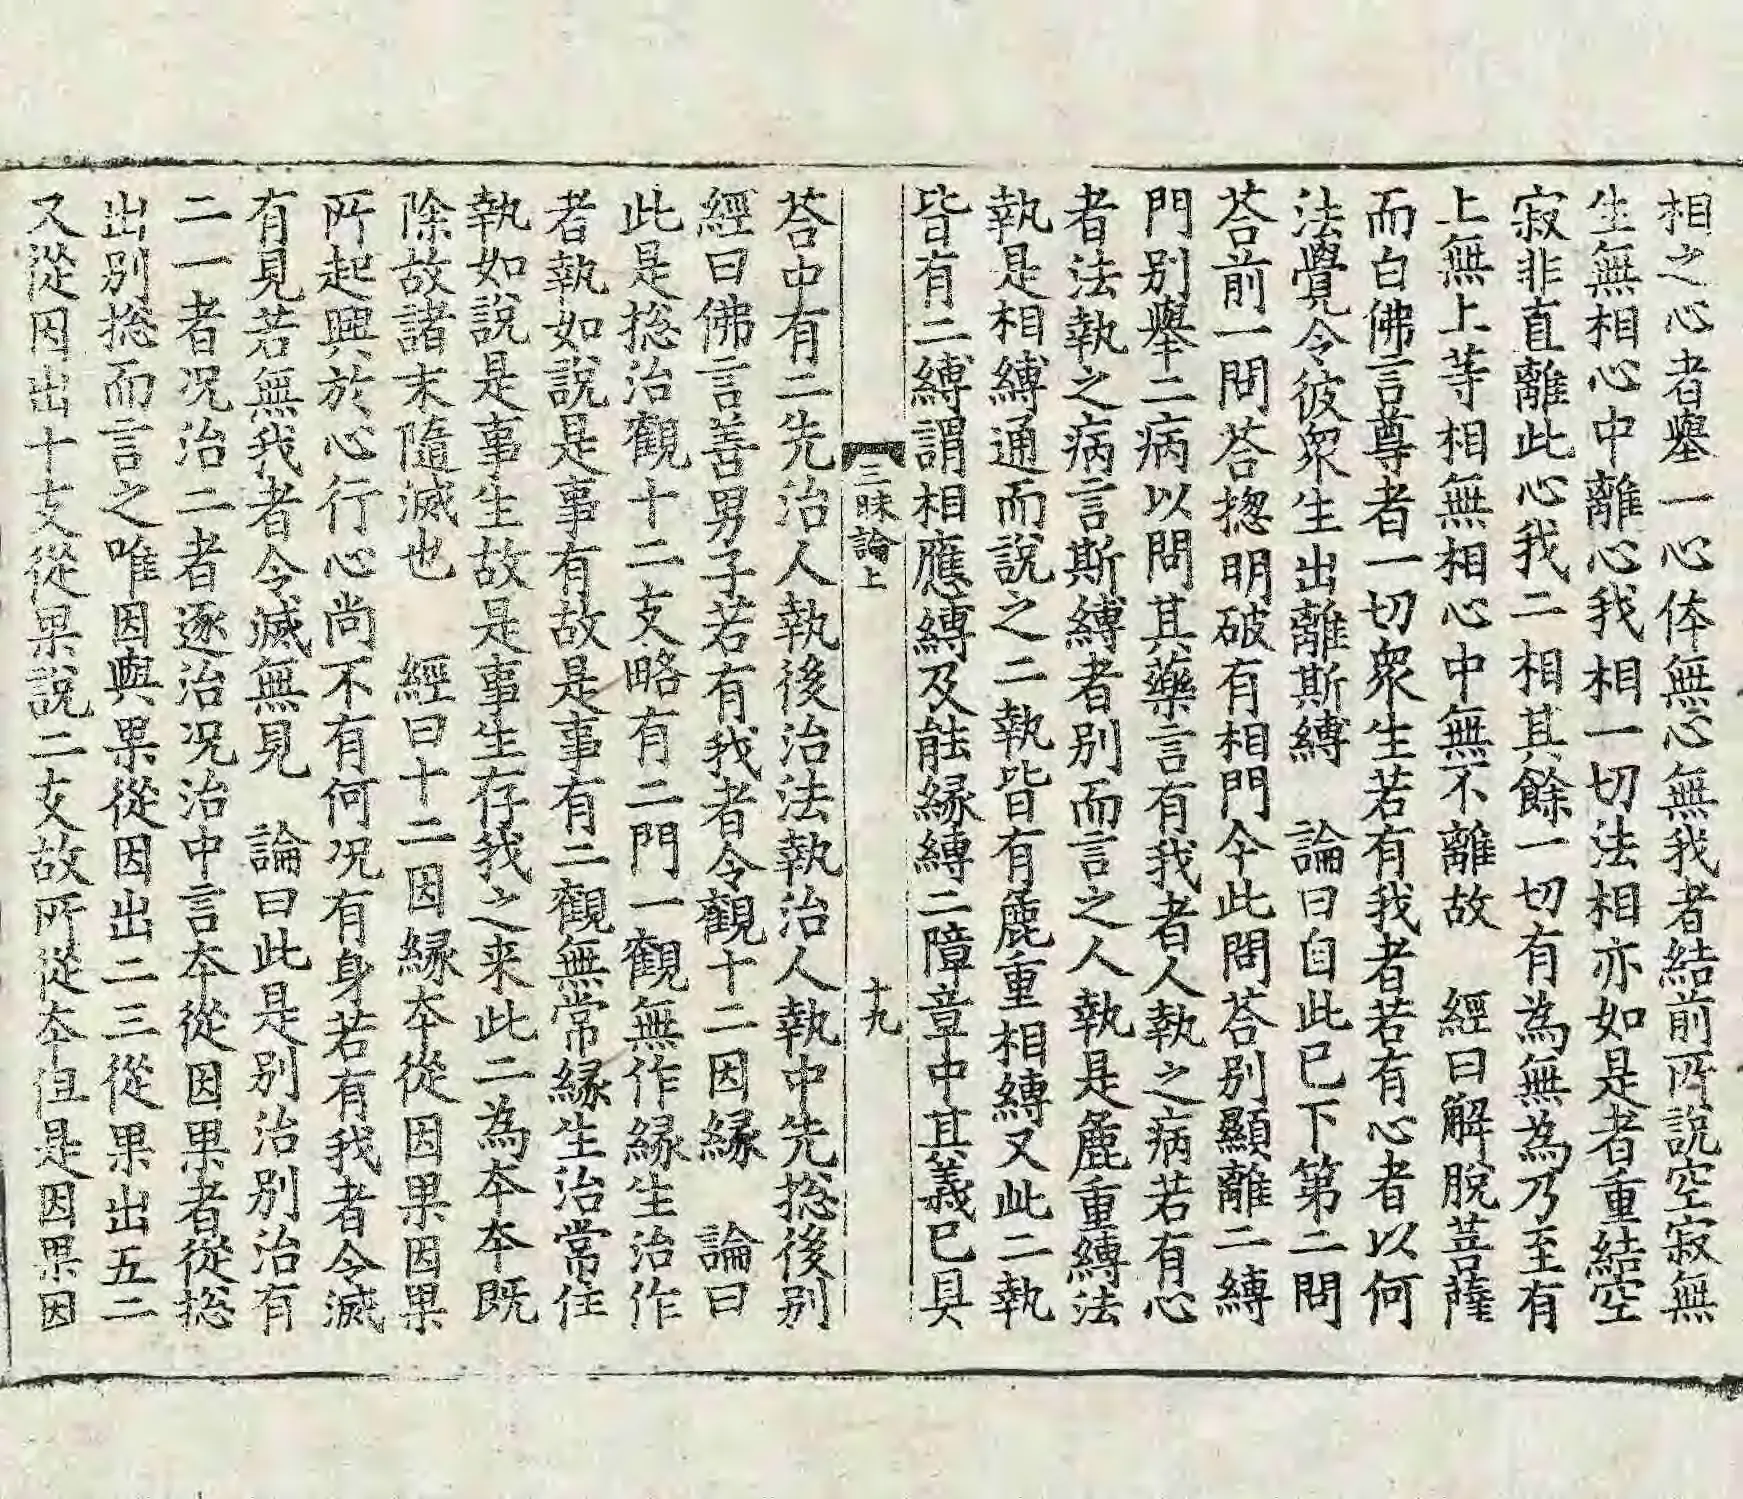 相之心者擧一心体無心無我者結前所說空寂無
生無相心中離心我相一切法相亦如是者重結空
寂非直離此心我二相其餘一切有為無為乃至有
上無上等相無相心中無不離故　經曰解脫菩薩
而白佛言尊者一切衆生若有我者若有心者以何
法覺令彼衆生出離斯縛　論曰自此已下第二問
荅前一問荅揔明破有相門今此問荅別顯離二縛
門別擧二病以問其藥言有我者人執之病若有心
者法執之病言斯縛者別而言之人執是麁重縛法
執是相縛通而說之二執皆有麁重相縛又此二執
皆有二縛謂相應縛及能緣縛二障章中其義已具
三昧論上　十九
荅中有二先治人執後治法執治人執中先捴後別
經曰佛言善男子若有我者令觀十二因緣　論曰
此是捴治觀十二支略有二門一觀無作緣生治作
者執如說是事有故是事有二觀無常緣生治常住
執如說是事生故是事生存我之来此二為本本既
除故諸末隨滅也　經曰十二因緣本從因果因果
所起興於心行心尚不有何况有身若有我者令滅
有見若無我者令滅無見　論曰此是別治別治有
二一者况治二者逐治况治中言本從因果者從捴
出別捴而言之唯因與果從因出二三從果出五二
又從因出十支從果說二支故所從本但是因果因